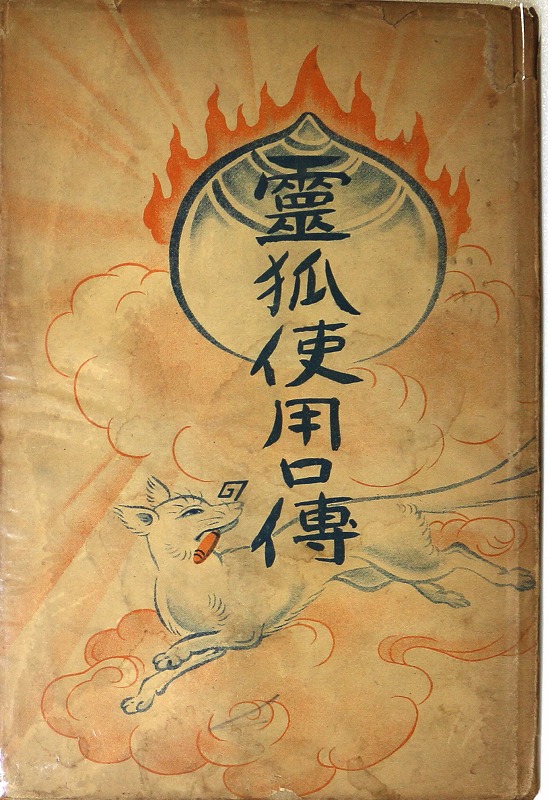 靈狐使用口傳